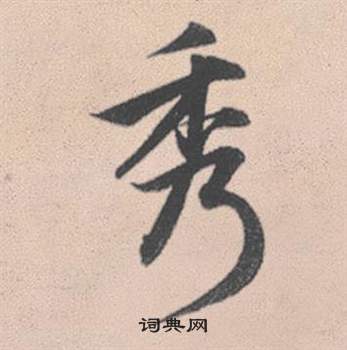 秀
词典网